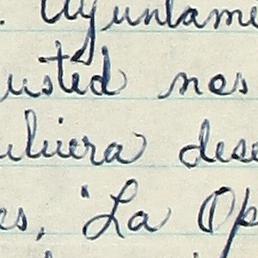 . Ayuntame
usted nos
uliera dese
es, "La Op